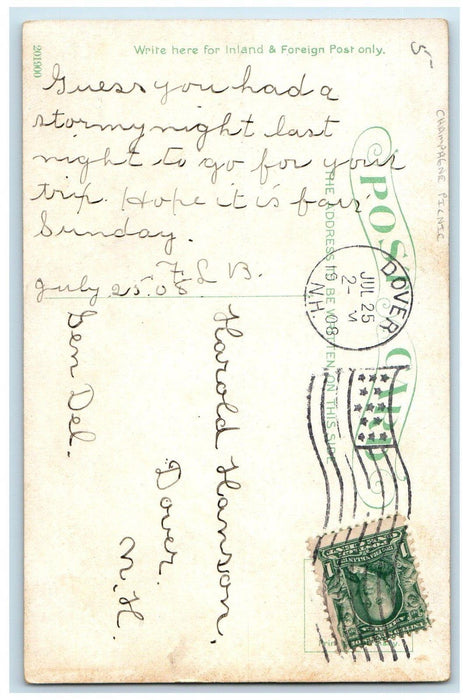 201900
Write here for Inland & Foreign Post only.
5-
CHAMPAGNE PICNIC
Guess you had a
stormy night last
night to go for your
trip. Hope it is fair
Sunday.
F. L. B.
July 25.08
POST CARD
THE ADDRESS TO BE WRITTEN ON THIS SIDE
DOVER
JUL 25
2- M
19 08
N.H.
Harold Hanson,
Dover,
N.H.
Gen Del.
1
1